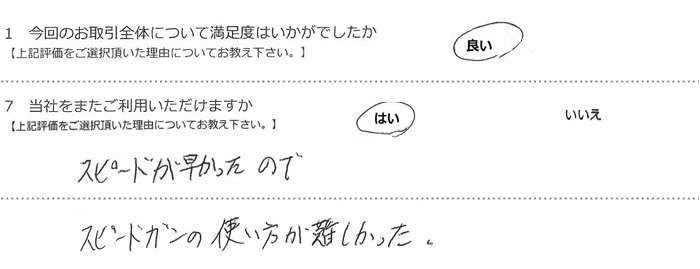 1 今回のお取引全体について満足度はいかがでしたか 良い
【上記評価をご選択頂いた理由についてお教え下さい。】
7 当社をまたご利用いただけますか はい いいえ
【上記評価をご選択頂いた理由についてお教え下さい。】
スピードが早かったので
スピードガンの使い方が難しかった。